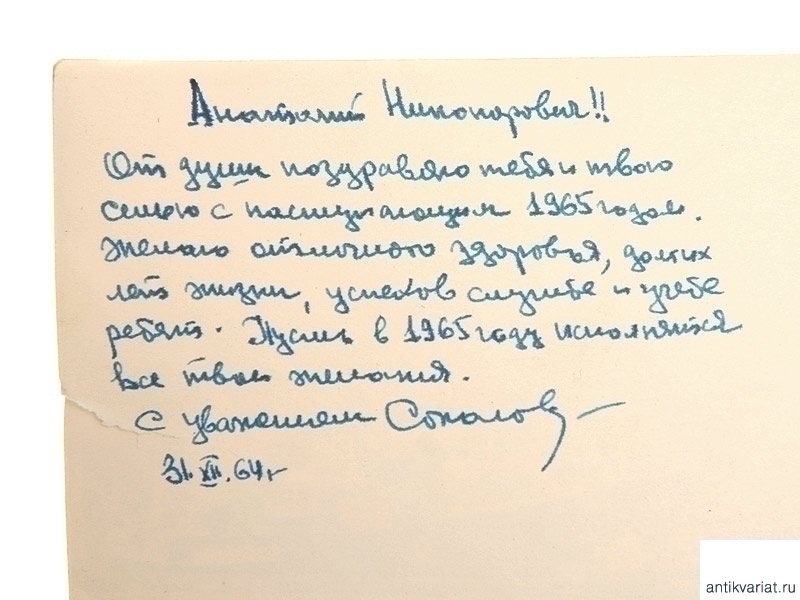 Анатолий Никонорович!!
От души поздравляю тебя и твою
семью с наступающим 1965 годом.
Желаю отличного здоровья, долгих
лет жизни, успехов службе и учебе
ребят. Пусть в 1965 году исполнятся
все твои желания.
С уважением Соколов
31.XII.64г
antikvariat.ru